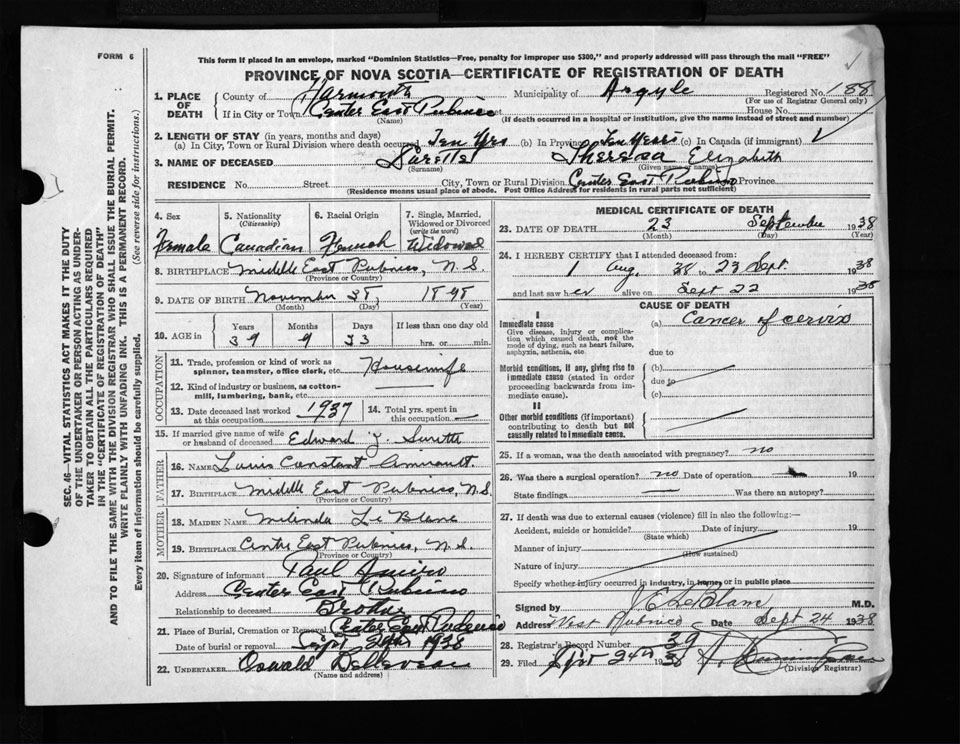 FORM 6
This form if placed in an envelope, marked "Dominion Statistics—Free, penalty for improper use $300," and properly addressed will pass through the mail "FREE"
PROVINCE OF NOVA SCOTIA—CERTIFICATE OF REGISTRATION OF DEATH
SEC. 46—VITAL STATISTICS ACT MAKES IT THE DUTY
OF THE UNDERTAKER OR PERSON ACTING AS UNDER-
TAKER TO OBTAIN ALL THE PARTICULARS REQUIRED
IN THE "CERTIFICATE OF REGISTRATION OF DEATH"
AND TO FILE THE SAME WITH THE DIVISION REGISTRAR WHO SHALL ISSUE THE BURIAL PERMIT.
WRITE PLAINLY WITH UNFADING INK. THIS IS A PERMANENT RECORD.
Every item of information should be carefully supplied. (See reverse side for instructions.)
1. PLACE OF DEATH County of Yarmouth Municipality of Argyle Registered No. 188
(For use of Registrar General only)
If in City or Town Center East Pubnico House No.
(Name) (If death occurred in a hospital or institution, give the name instead of street and number)
2. LENGTH OF STAY (in years, months and days)
(a) In City, Town or Rural Division where death occurred Ten Yrs (b) In Province Ten Years (c) In Canada (if immigrant)
3. NAME OF DECEASED Surette Theresa Elizabeth
(Surname) (Given name or names)
RESIDENCE No. Street City, Town or Rural Division Center East Pubnico Province
(Residence means usual place of abode. Post Office Address for residents in rural parts not sufficient)
4. Sex 5. Nationality 6. Racial Origin 7. Single, Married, Widowed or Divorced
(Citizenship) (write the word)
Female Canadian French Widowed
8. BIRTHPLACE Middle East Pubnico, N.S.
(Province or Country)
9. DATE OF BIRTH November
(Month) (Day) (Year)
10. AGE in Years Months Days If less than one day old
39 9 23 hrs. or min.
OCCUPATION
11. Trade, profession or kind of work as spinner, teamster, office clerk, etc. Housewife
12. Kind of industry or business, as cotton-mill, lumbering, bank, etc.
13. Date deceased last worked at this occupation 1937 14. Total yrs. spent in this occupation
15. If married give name of wife or husband of deceased Edward J. Surette
FATHER
16. NAME Louis Constant Amirault.
17. BIRTHPLACE Middle East Pubnico, N.S.
(Province or Country)
MOTHER
18. MAIDEN NAME Melinda Le Blanc
19. BIRTHPLACE Centre East Pubnico, N.S.
(Province or Country)
20. Signature of informant Paul Amiro
Address Center East Pubnico
Relationship to deceased Brother
21. Place of Burial, Cremation or Removal Center East Pubnico
Date of burial or removal Sept 1938
22. UNDERTAKER Oswald
(Name and address)
MEDICAL CERTIFICATE OF DEATH
23. DATE OF DEATH 23 September 1938
(Month) (Day)
24. I HEREBY CERTIFY that I attended deceased from:
1 Aug. 38 to 23 Sept. 1938
and last saw her alive on Sept 22 1938
CAUSE OF DEATH
I
Immediate cause (a) Cancer of cervix
Give disease, injury or complication which caused death, not the mode of dying, such as heart failure, asphyxia, asthenia, etc.
due to
Morbid conditions, if any, giving rise to immediate cause (stated in order proceeding backwards from immediate cause). (b)
due to
(c)
II
Other morbid conditions (if important) contributing to death but not causally related to immediate cause.
25. If a woman, was the death associated with pregnancy? no
26. Was there a surgical operation? no Date of operation 19
State findings Was there an autopsy?
27. If death was due to external causes (violence) fill in also the following:—
Accident, suicide or homicide? Date of injury 19
(State which)
Manner of injury
(How sustained)
Nature of injury
Specify whether injury occurred in industry, in home, or in public place
Signed by J E LeBlanc M.D.
Address West Pubnico Date Sept 24 1938
28. Registrar's Record Number 39
29. Filed Sept 24th 1938
(Division Registrar)